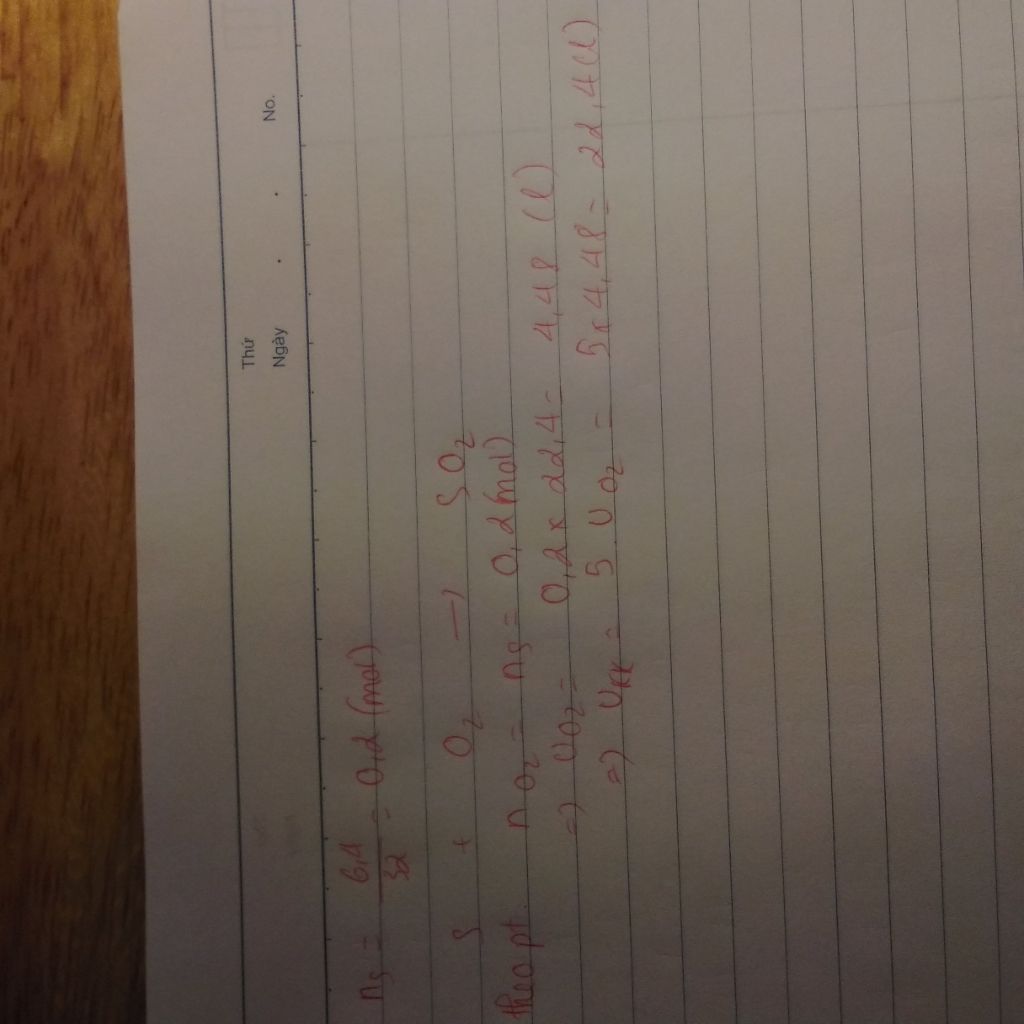 Thứ
Ngày . . No.
nS = 6,4/32 = 0,2 (mol)
S + O2 → SO2
theo pt. nO2 = nS = 0,2 (mol)
=) VO2 = 0,2 x 22,4 = 4,48 (l)
=) VKK = 5 . VO2 = 5 x 4,48 = 22,4 (l)